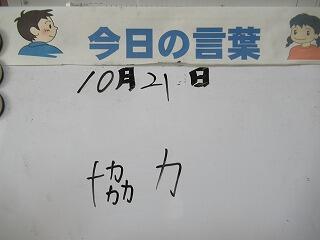 今日の言葉
10月21日
協力